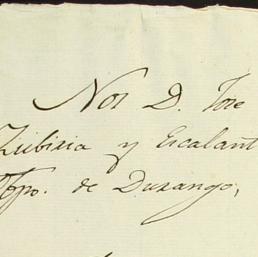 Nos D. Jose
Zubiria y Escalant
Obpo. de Durango,